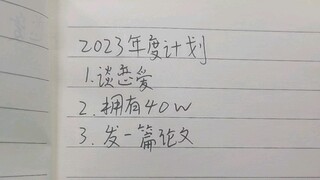 2023年度计划
1.谈恋爱
2.拥有40W
3.发一篇论文